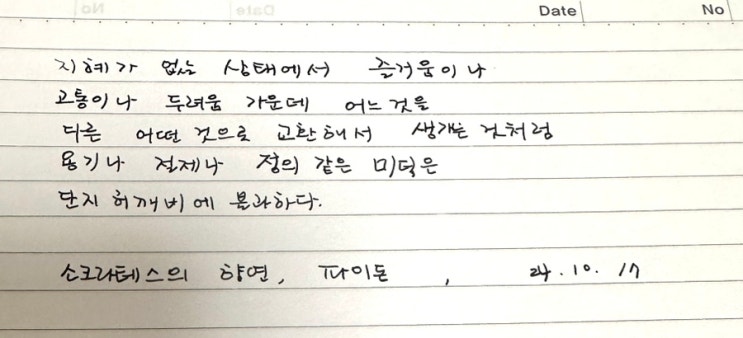 Date No
지혜가 없는 상태에서 즐거움이나
고통이나 두려움 가운데 어느 것을
다른 어떤 것으로 교환해서 생개는 것처럼
용기나 절제나 정의 같은 미덕은
단지 허깨비에 불과하다.
소크라테스의 향연, 파이돈, 24.10.17